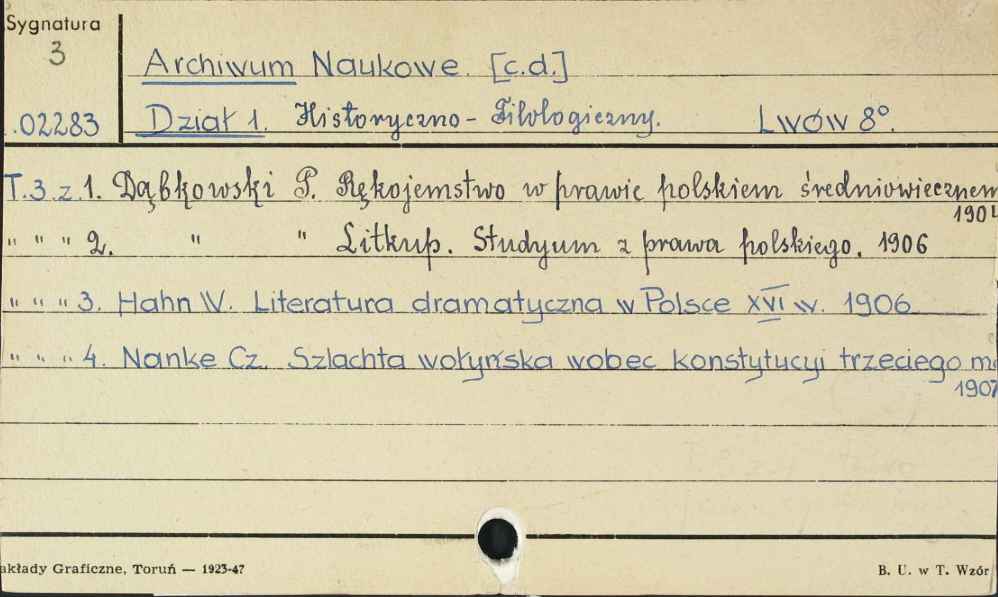 Sygnatura
3
Archiwum Naukowe. [c.d.]
.02283 Dział 1. Historyczno - Filologiczny. Lwów 8°.
T. 3 z. 1. Dąbkowski P. Rękojemstwo w prawie polskiem średniowiecznem
190
" " " 2. " " Litkup. Studyum z prawa polskiego. 1906
" " " 3. Hahn W. Literatura dramatyczna w Polsce XVI w. 1906
" " " 4. Nanke Cz. Szlachta wołyńska wobec konstytucyi trzeciego ma
1907
akłady Graficzne, Toruń — 1923-47 B. U. w T. Wzór